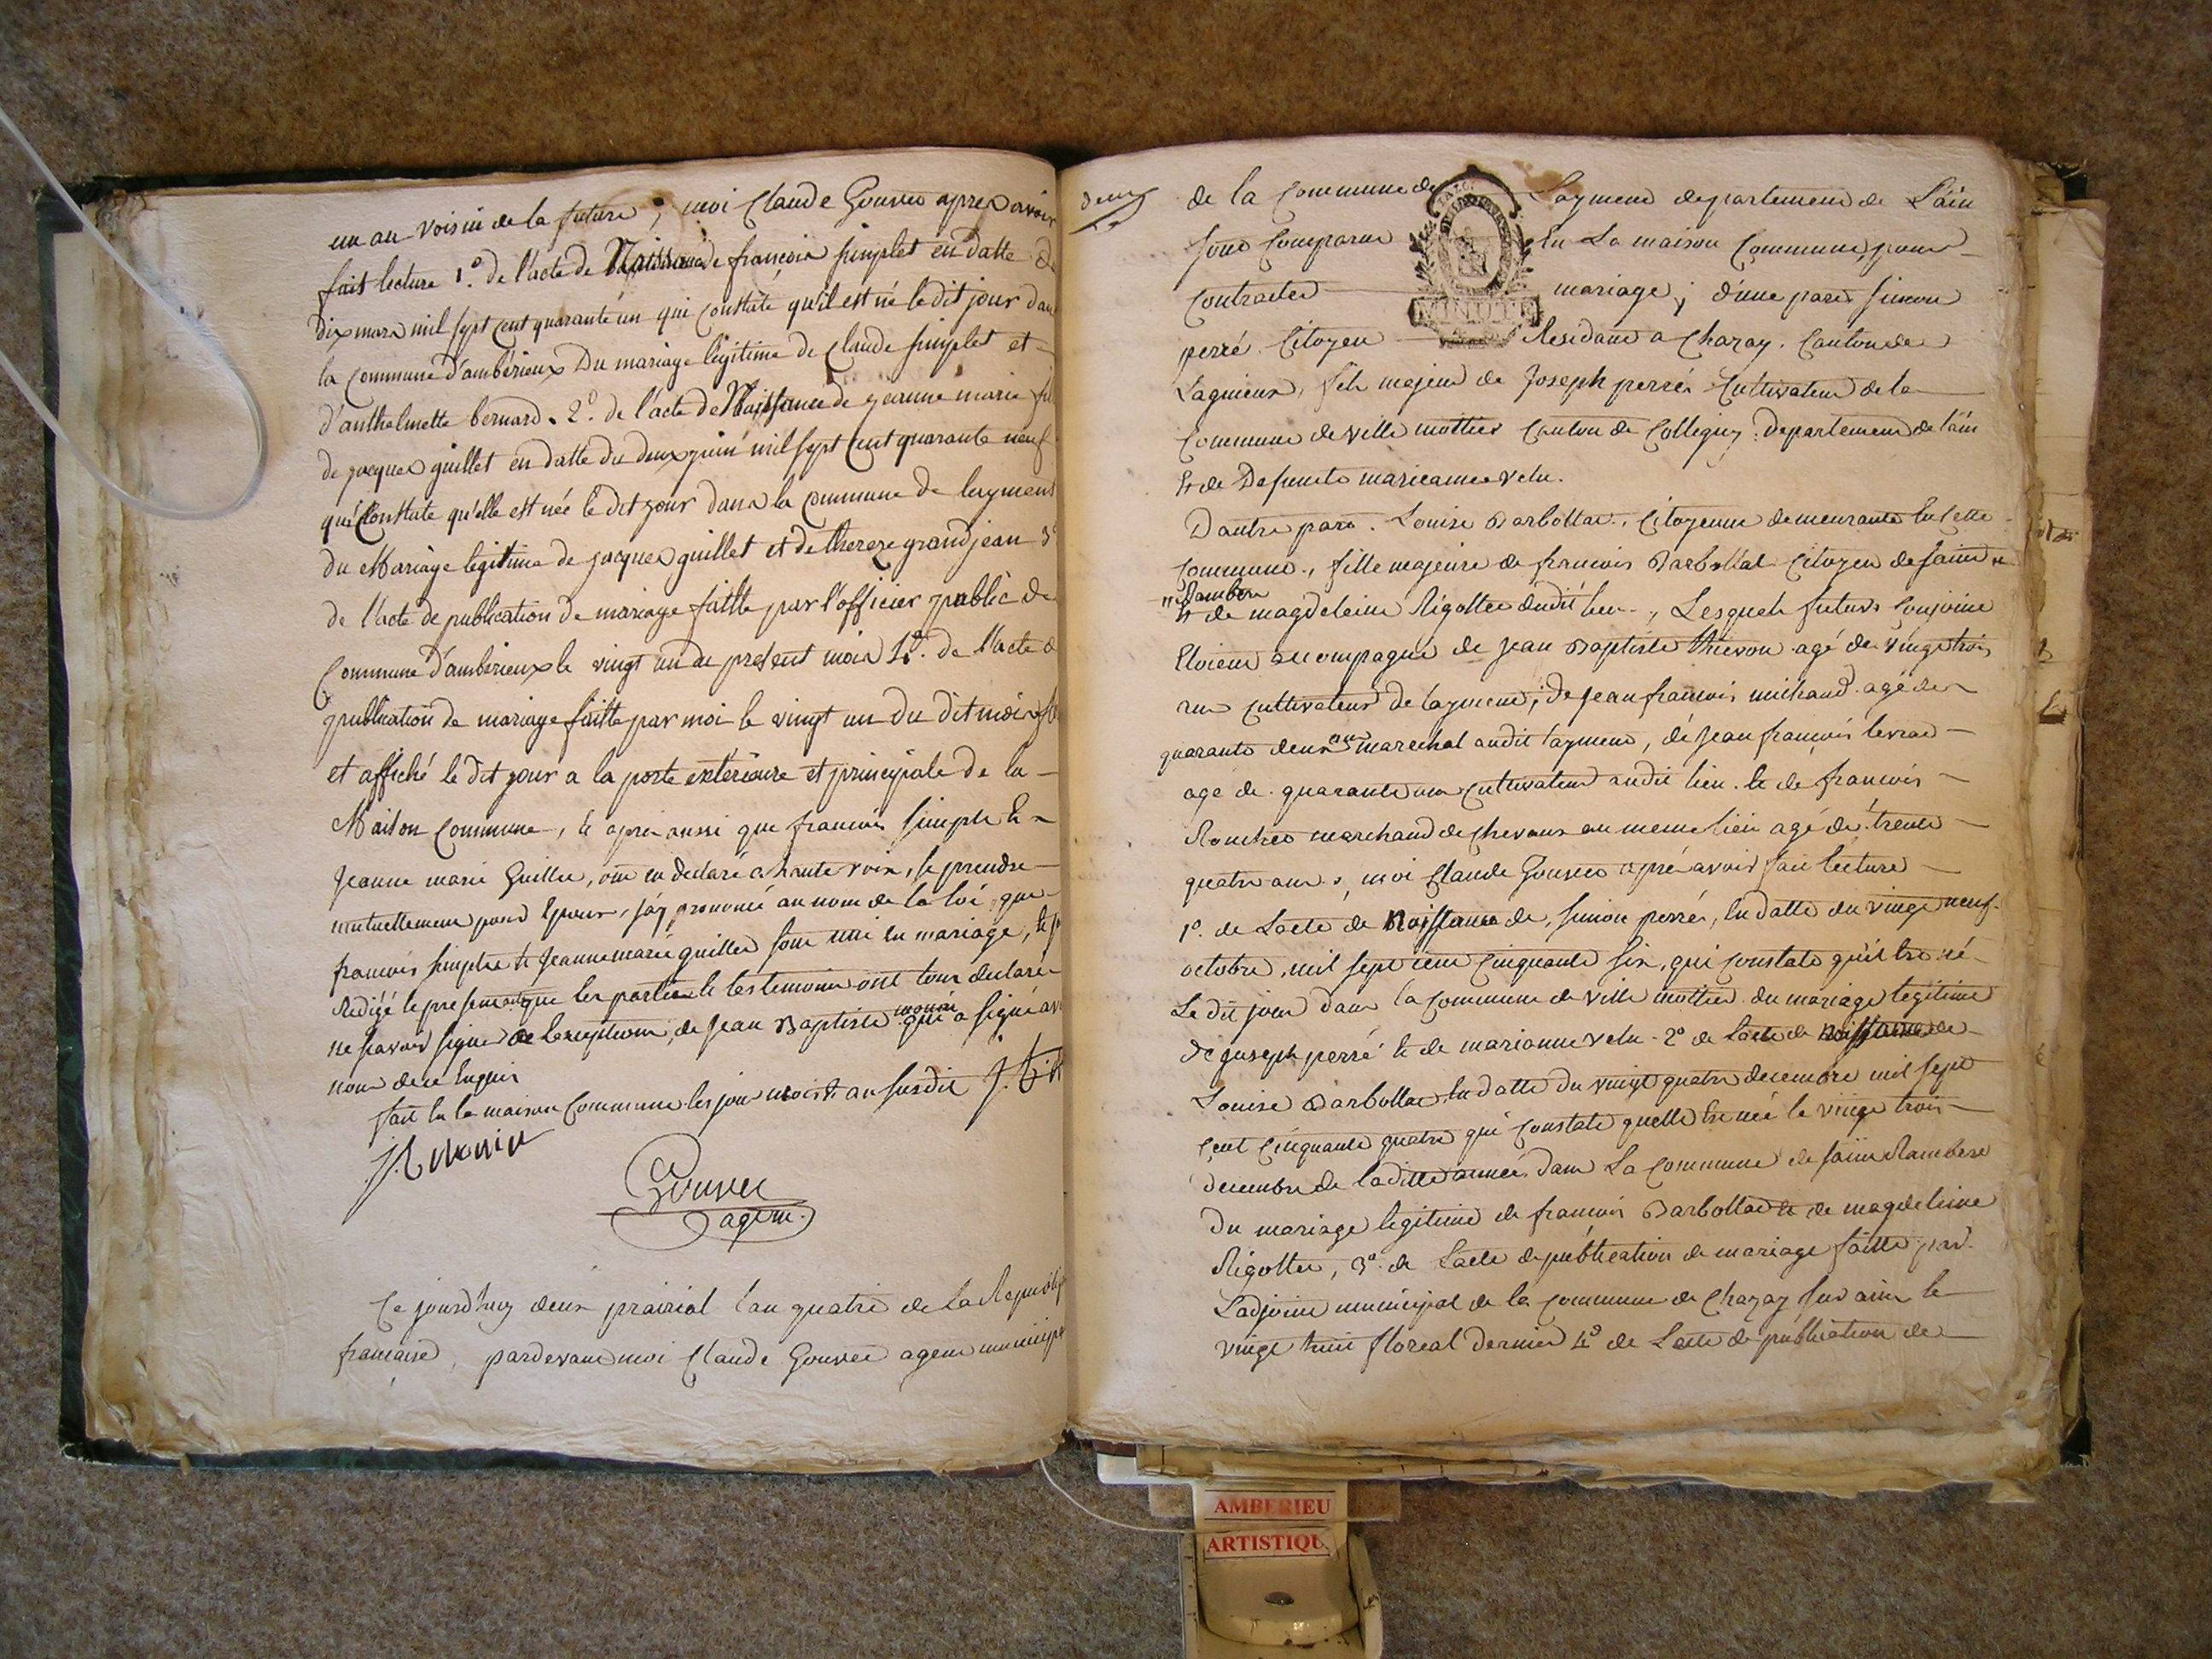 un an voisin de la future ; moi Claude Gouvee apres avoir
fait lecture 1º. de l'acte de Naissance de francois simplet en datte
dix mars mil sept cent quarante un qui constate qu'il est né le dit jour dan
la commune d'ambérieux Du mariage légitime de Claude simplet et
d'anthelmette bernard. 2º. de l'acte de Naissance de jeanne marie
de jacques guillet en datte du deux juin mil sept cent quarante neuf
qui Constate qu'elle est née le dit jour dans la commune de
du Mariage legitime de jacques guillet et de thereze grandjean 3º
de l'acte de publication de mariage faitte par l'officier public de
Commune d'ambérieux le vingt un du present mois 4º. de l'acte d
publication de mariage faitte par moi le vingt un du dit mois
et affiché le dit jour a la porte extérieure et principale de la
Maison Commune, & apres aussi que francois simplet &
Jeanne marie Guillet, ont eu declaré a haute voix, se prendre
mutuellement pour Epoux, j'ay prononcé au nom de la loi que
francois simplet & Jeanne marie guillet sont uni en mariage, &
Rédigé le present que les parties & les temoins ont tous declaré
ne savoir signer de l'exeptions, de Jean Baptiste qui a signé
nous de ce Enquis
fait En la maison Commune les jour mois & an susdit
Gouvee
agent.
Ce jourd'huy deux prairial l'an quatre de La Republiq
francaise, pardevant moi Claude Gouvee agent municipal
deux
de la Commune de Laymend departement de L'ain
sont Comparus En La maison Commune, pour
Contracter mariage ; d'une part Simon
perré Citoyen Residant a Chazay. Canton de
Lagnieux, fils majeur de Joseph perré Cultivateur de la
Commune de Ville mottier Canton de Colligny departement de lain
& de Defuncte marieanne velu.
D'autre part. Louise Barbottat, Citoyenne demeurante En Cette
Commune., fille majeure de francois Barbottat Citoyen de saint
Rambert
& de magdeleine Rigottee dudit lieu., Lesquels futurs Conjoins
Etoient accompagné de Jean Baptiste thievon agé de vingt trois
ans Cultivateur de laymend, de Jean francois michaud agé de
quarante deux ans marechal audit laymend, de Jean francois levrat
agé de quarante ans Cultivateur audit lieu. & de francois
marchand de Chevaux au meme lieu agé de trente
quatre ans, moi Claude Gouvee apré avoir fait lecture
1º. de Lacte de Naissance de, Simon perré, En datte du vingt neuf
octobre, mil sept cent Cinquante six, qui Constate qu'il Est né
Le dit jour dans la Commune de Ville mottier du mariage legitime
de Joseph perré & de marianne velu. 2º de Lacte de naissance de
Louise Barbottat En datte du vingt quatre decembre mil sept
Cent Cinquante quatre qui Constate quelle Est née le vingt trois
decembre de laditte année dans La Commune de saint Rambert
du mariage legitime de francois Barbottat & de magdeleine
Rigottee, 3º. de Lacte de publication de mariage faitte par
Ladjoint municipal de la Commune de Chazay sur ain le
vingt huit floreal dernier 4º de Lacte de publication de
MINUTE
AMBERIEU
ARTISTIQU